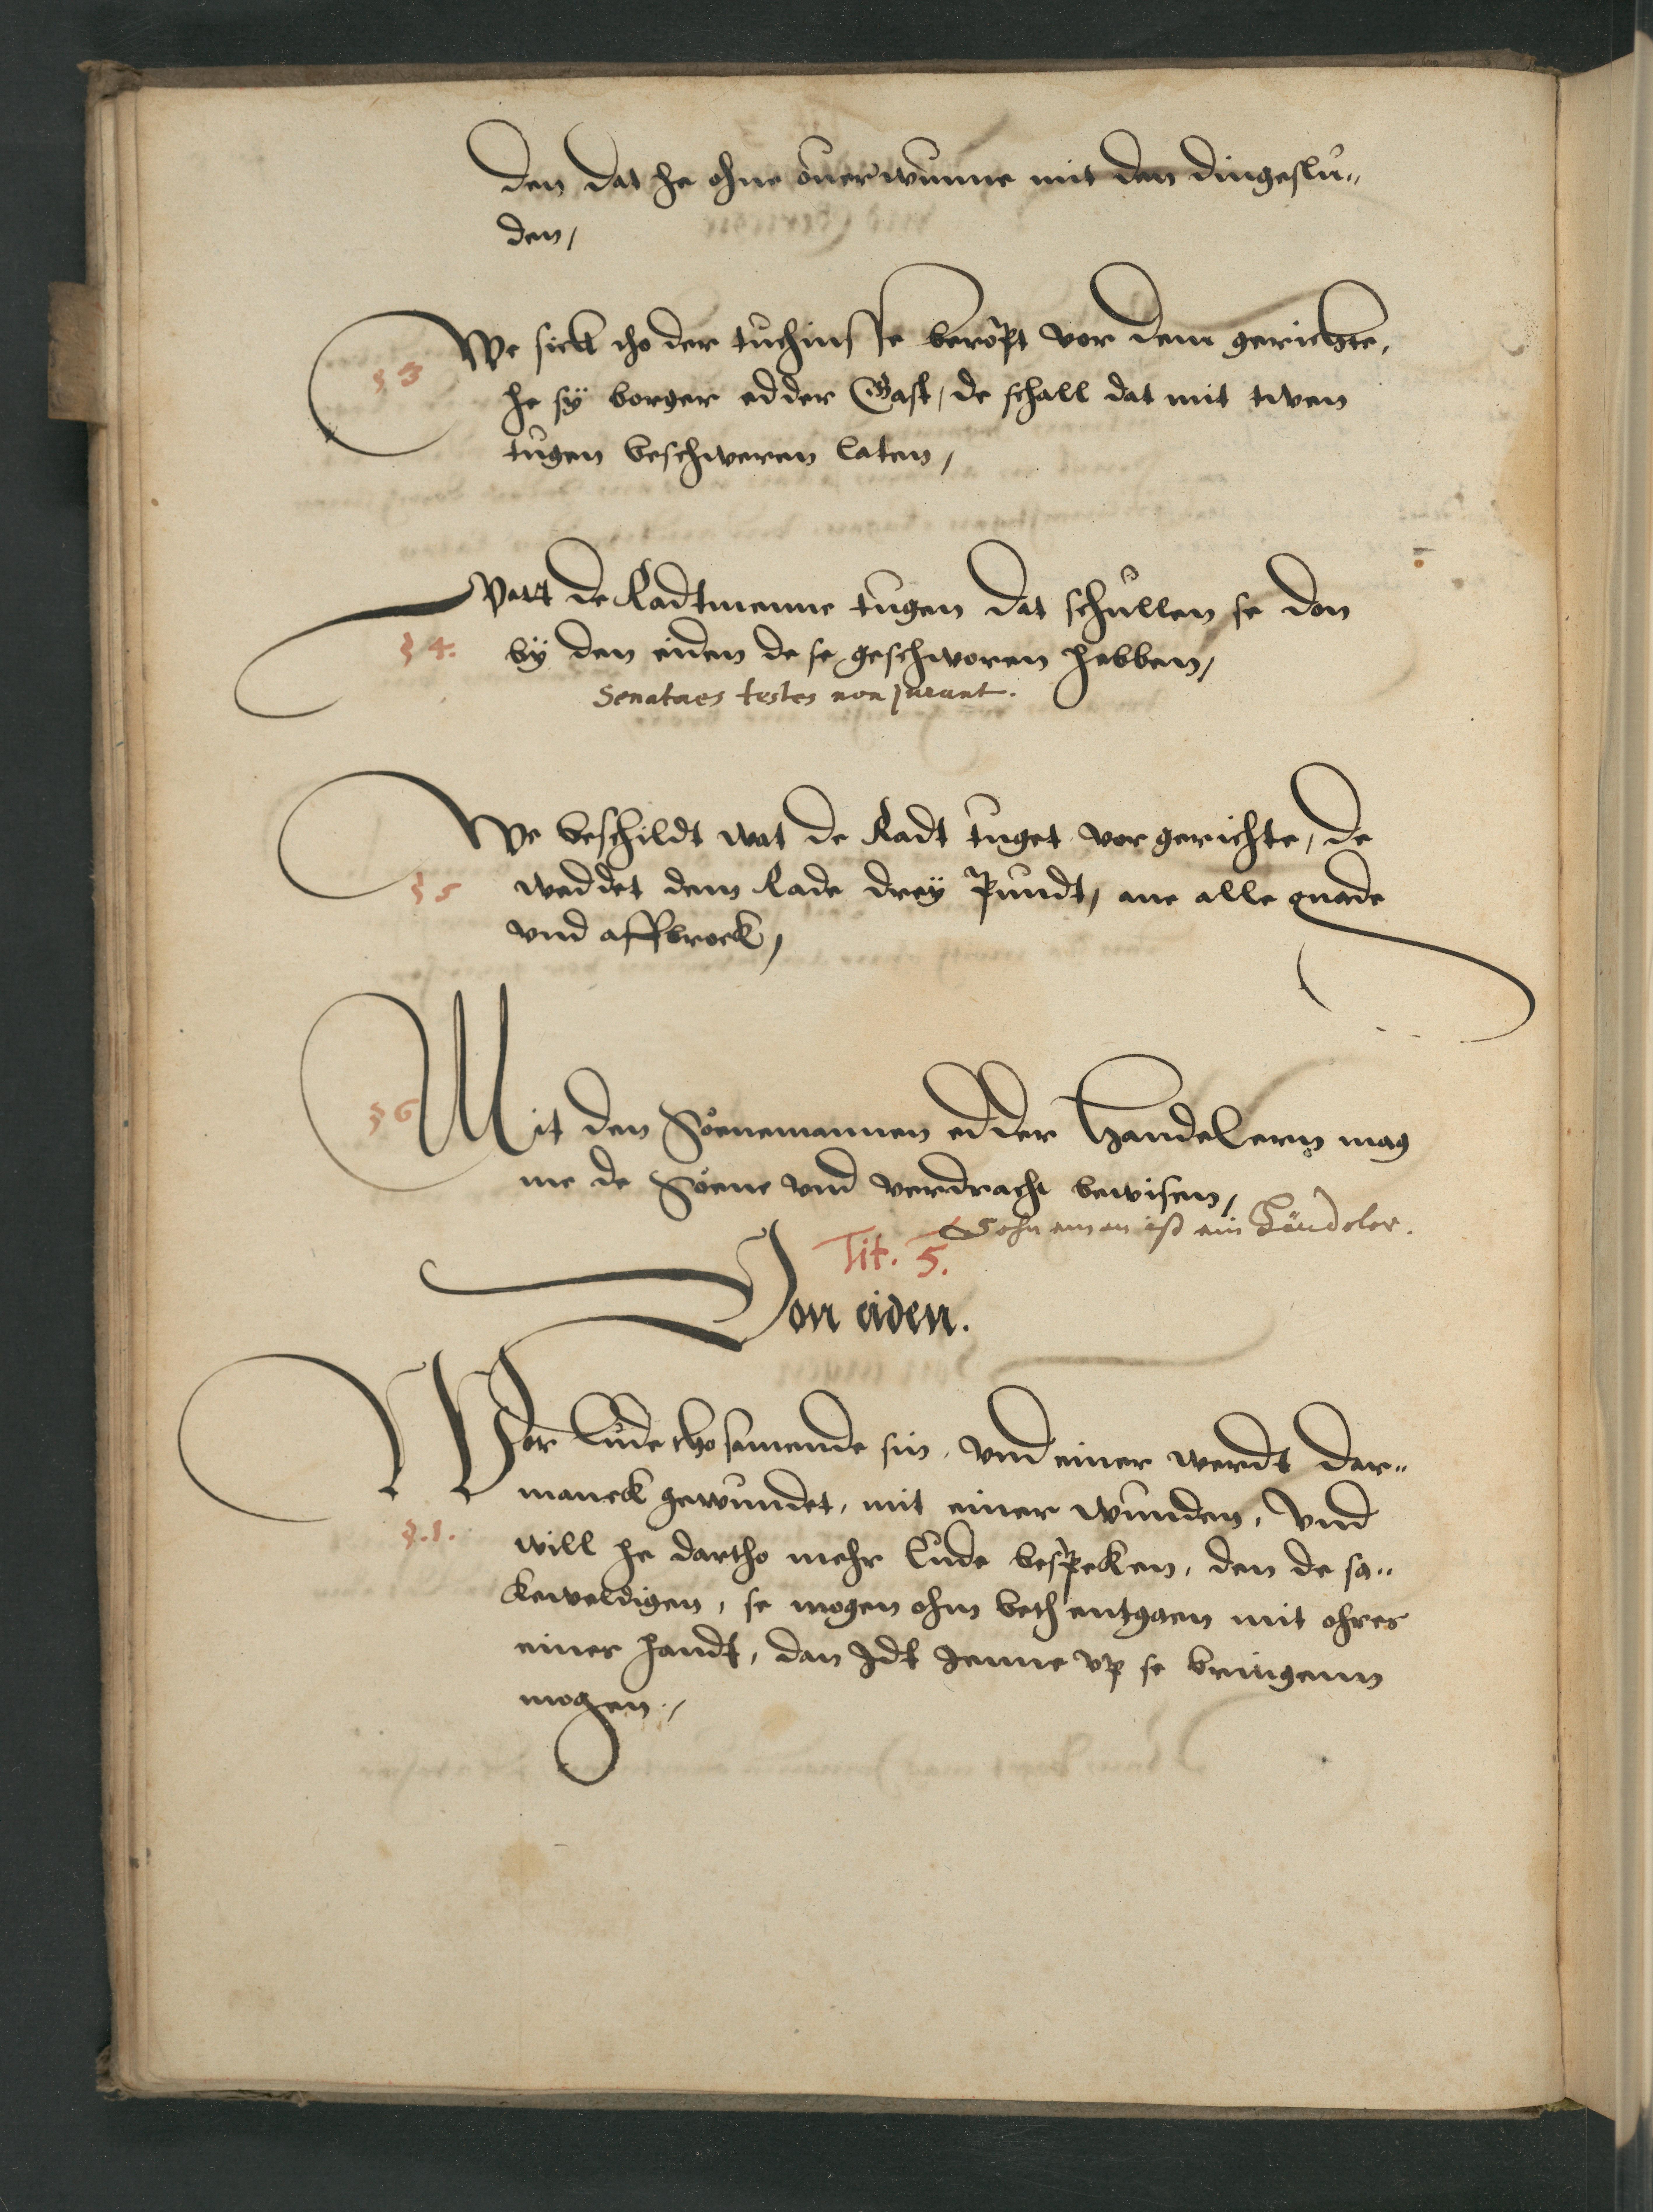 den dat he ohne ouerwunne mit den dingeslu„
den,
We sick tho der tuchnisse beropt vor dem gerichte,
§ 3
he sÿ borger edder Gast, de schall dat mit twen
tugen beschweren laten,
Watt de Radtmenne tugen dat schullen se don
§ 4.
bÿ den eiden de se geschworen hebben,
Senatores testes non jurant.
We beschildt wat de Radt tuget vor gerichte, de
§ 5
weddet dem Rade dreÿ Pundt, ane alle gnade
vnd affbrock,
§ 6
Mit den Soenemannen edder Handelern mag
me de Soene vnd verdracht bewisen,
Sohneman ist ein Händeler.
Tit. 5.
Von eiden.
Wor Lude tho samende sin, vnd einer werdt dar„
manck gewundet, mit einer wunden, vnd
§. 1.
will he dartho mehr Lude bespreken, den de sa„
keweldigen, se mogen ohm beth entgaen mit ohrer
einer handt, dan Idt Jenne vp se bringenn
mogen,